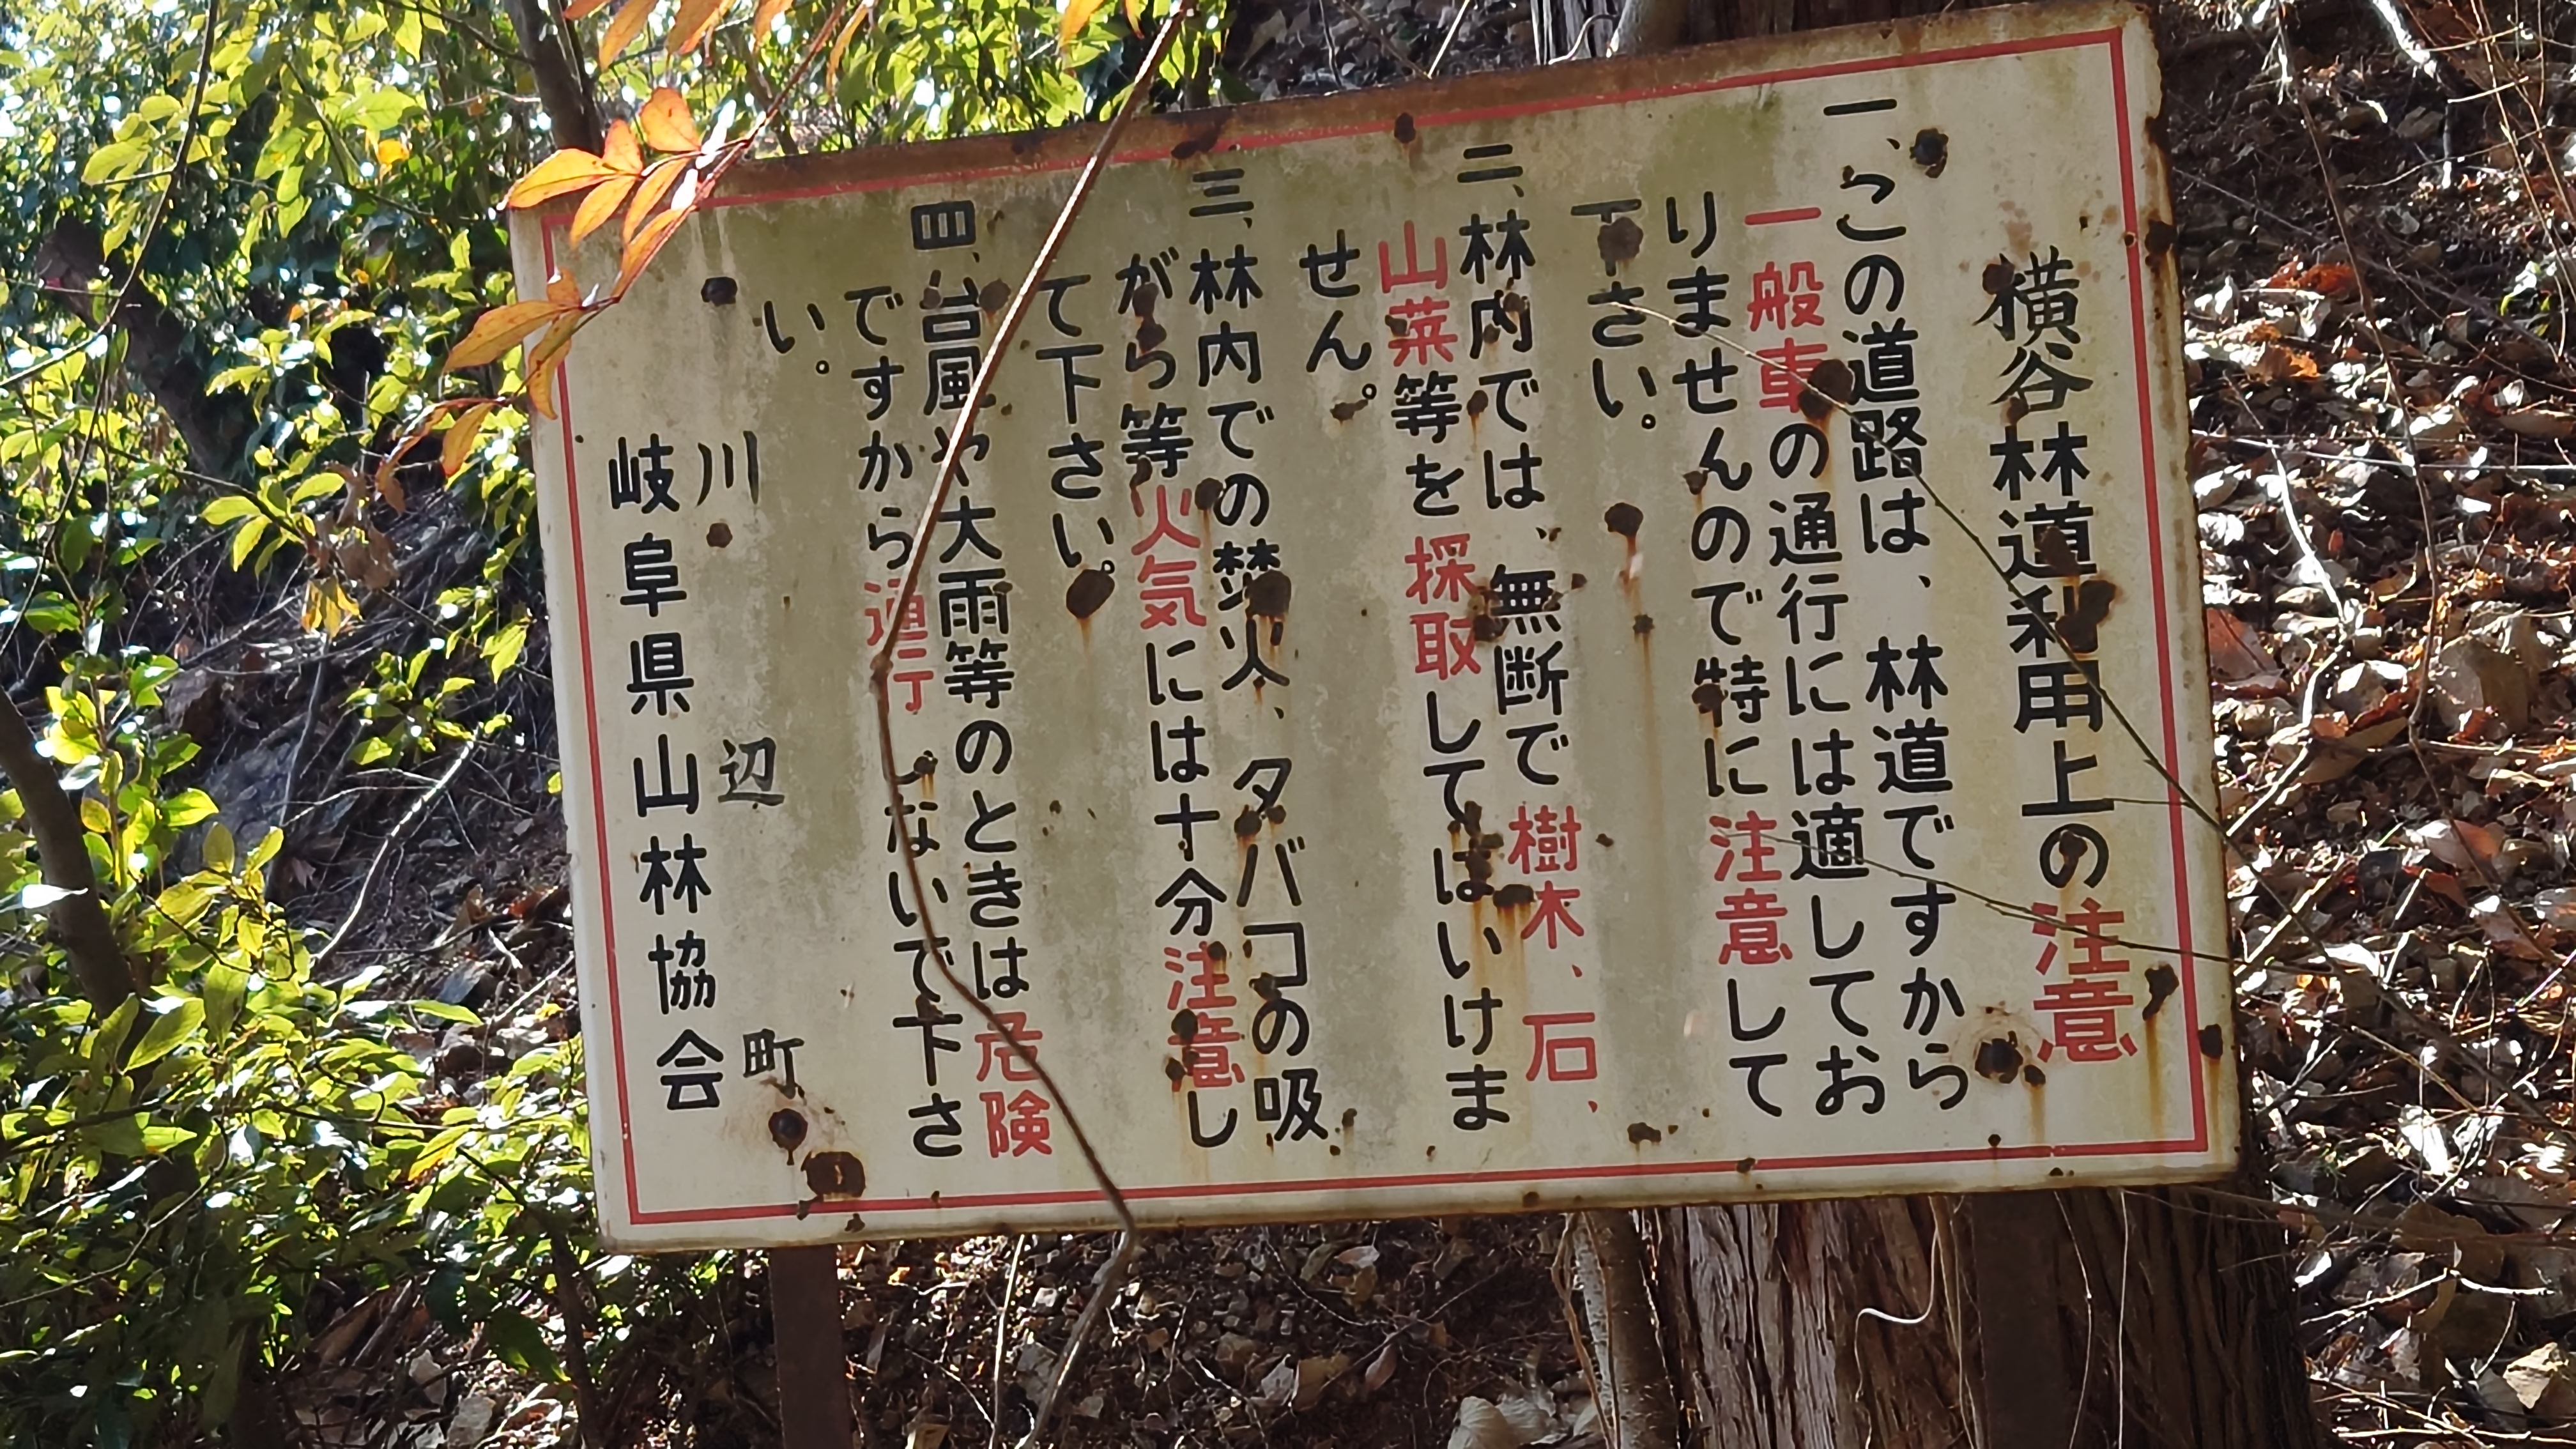 横谷林道利用上の注意
一、この道路は、林道ですから
一般車の通行には適してお
りませんので特に注意して
下さい。
二、林内では、無断で樹木、石、
山菜等を採取してはいけま
せん。
三、林内での焚火、タバコの吸
がら等火気には十分注意し
て下さい。
四、台風や大雨等のときは危険
ですから通行しないで下さ
い。
川辺町
岐阜県山林協会